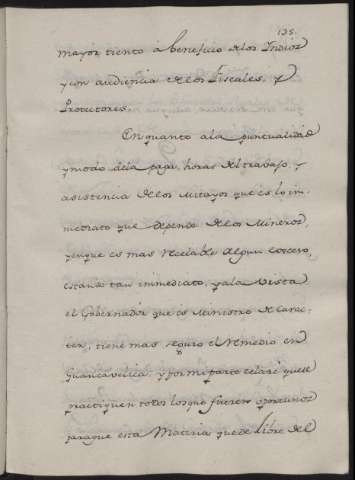 135.
mayor tiento á beneficio de los Indios
y con audiencia de los Fiscales, y
Protectores.
En quanto ala puntualidad
y modo dela paga, horas del trabajo, y
asistencia de los Mitayos que es lo in-
mediato que depende de los Mineros,
y en que es mas recelable algun exceso,
estando tan immediato, y ala vista
el Gobernador que es Ministro de Carac-
ter, tiene mas seguro el remedio en
Guancavelica; y por mi parte celaré que se
practiquen todos los que fueren oportunos
paraque esta Materia quede libre del